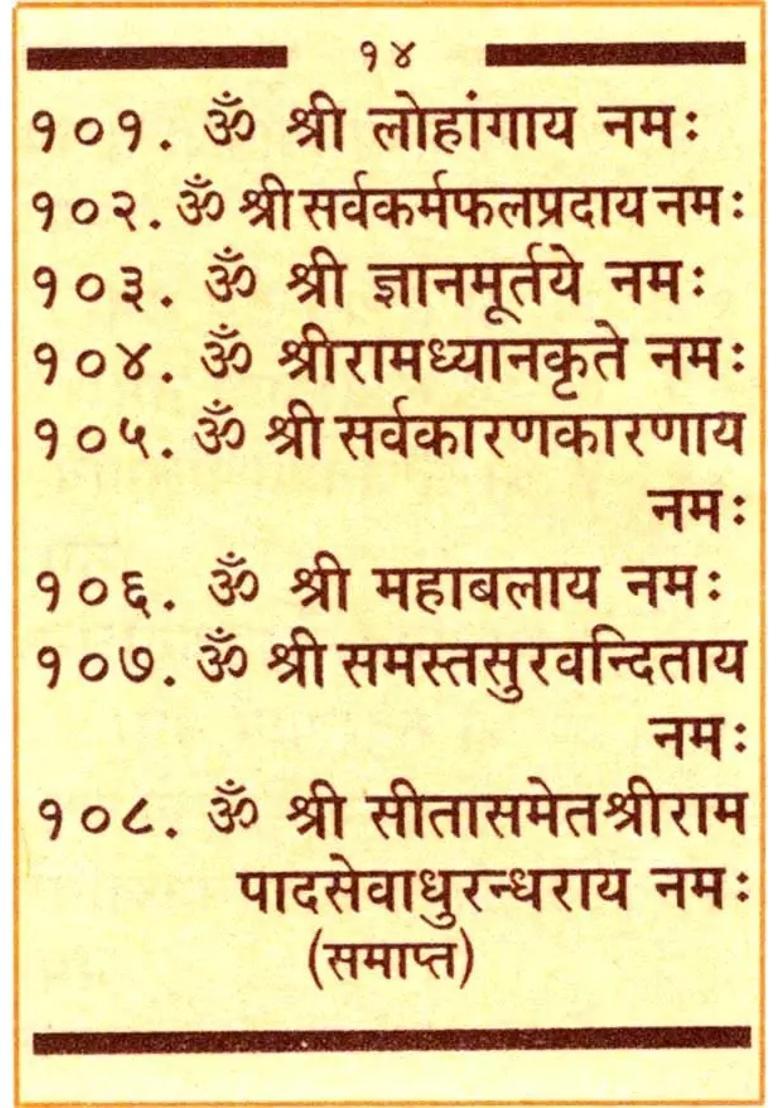 १४
१०१. ॐ श्री लोहांगाय नमः
१०२. ॐ श्री सर्वकर्मफलप्रदाय नमः
१०३. ॐ श्री ज्ञानमूर्तये नमः
१०४. ॐ श्रीरामध्यानकृते नमः
१०५. ॐ श्री सर्वकारणकारणाय
नमः
१०६. ॐ श्री महाबलाय नमः
१०७. ॐ श्री समस्तसुरवन्दिताय
नमः
१०८. ॐ श्री सीतासमेतश्रीराम
पादसेवाधुरन्धराय नमः
(समाप्त)